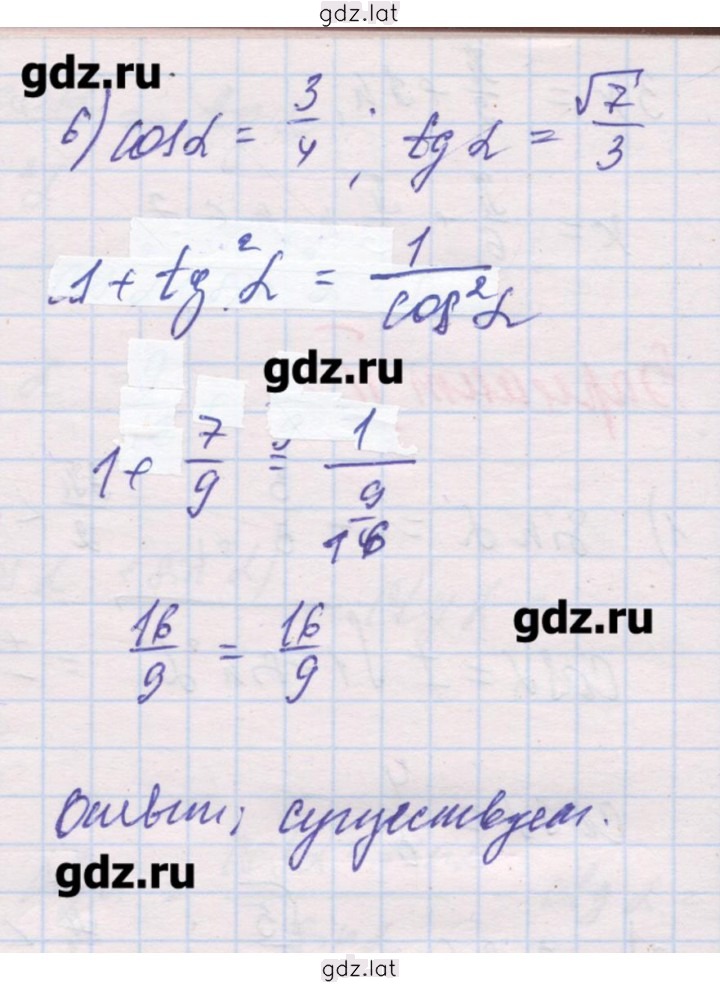 gdz.lat
gdz.ru
б) cos α = 3/4 ; tg α = √7/3
1 + tg² α = 1/cos² α
gdz.ru
1 + 7/9 = 1/(9/16)
gdz.ru
16/9 = 16/9
Ответ: существует.
gdz.ru
gdz.lat